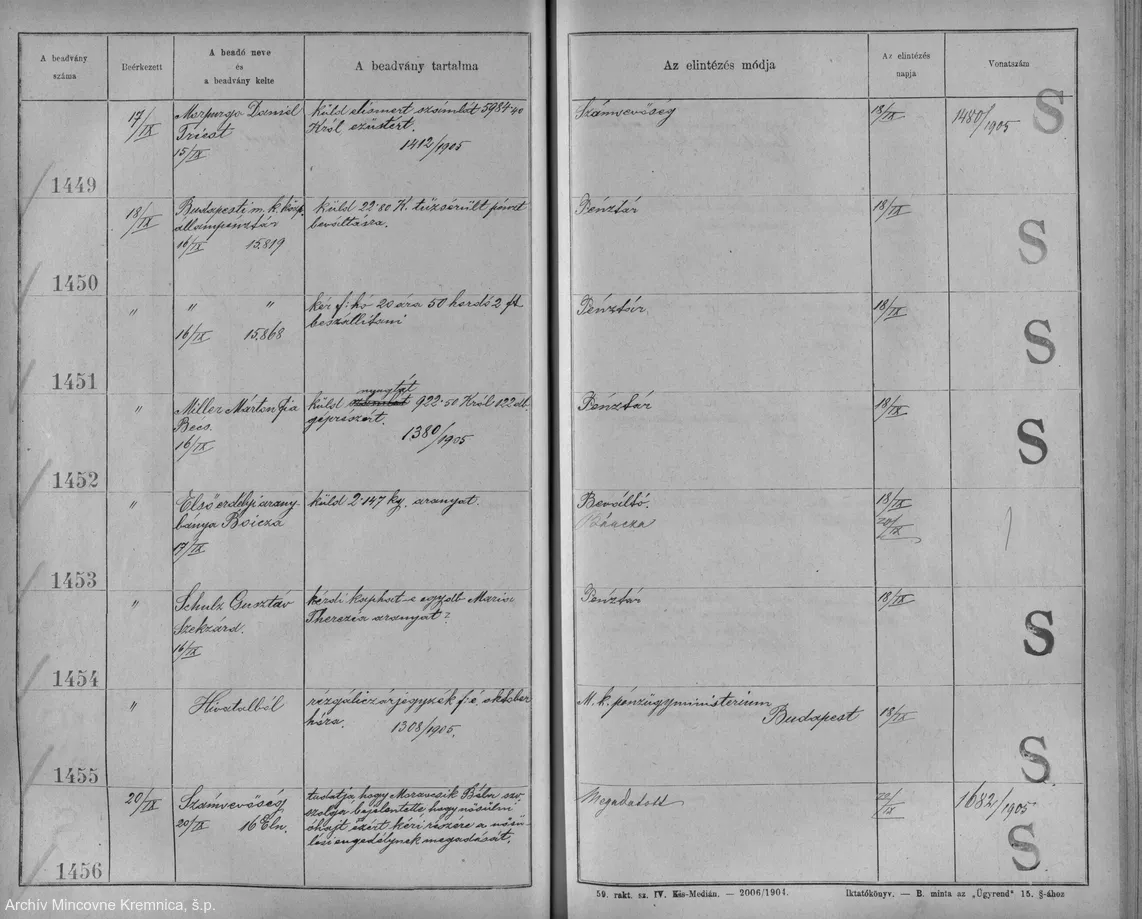 A beadvány száma
Beérkezett
A beadó neve és a beadvány kelte
A beadvány tartalma
Az elintézés módja
Az elintézés napja
Vonatszám
17/IX
Morpurgo Daniel
Triest
15/IX
küld elismert számlát 5984·40
Król ezüstért.
1412/1905
Számvevőség
18/IX
1480/1905
S
1449
18/IX
Budapesti m. k. közp.
állampénztár
16/IX 15.819
küld 22·80 K. tűzsérült pénzt
beváltásra.
Pénztár
18/IX
S
1450
" " "
16/IX 15.868
kér f. hó 20 ára 50 hordó 2 f
beszállítani
Pénztár
18/IX
S
1451
"
Miller Márton fia
Becs.
16/IX
nyugtát
küld 922·50 Król 122 db.
géprészért.
1380/1905
Pénztár
18/IX
S
1452
"
Első erdélyi arany-
bánya Boicza
17/IX
küld 2·147 kg. aranyat.
Beváltó.
18/IX
20/IX
1453
"
Schulz Gusztáv
Szekzárd.
16/IX
kérdi kaphat-e egy db Maria
Therezia aranyat?
Pénztár
18/IX
S
1454
"
Hivatalból
rézgáliczárjegyzék f. é. október
hóra.
1308/1905.
M. k. pénzügyministerium
Budapest
18/IX
S
1455
20/IX
Számvevőség
20/IX 16 Eln.
tudatja hogy Moravcsik Béla
szolga bejelentette, hogy nősülni
óhajt, ezért kéri részére a nősü-
lési engedélynek megadását.
Megadatott
20/IX
1682/1905
S
1456
59. rakt. sz. IV. Kis-Medián. — 2006/1904.
Iktatókönyv. — B. minta az „Ügyrend" 15. §-ához
Archív Mincovne Kremnica, š.p.